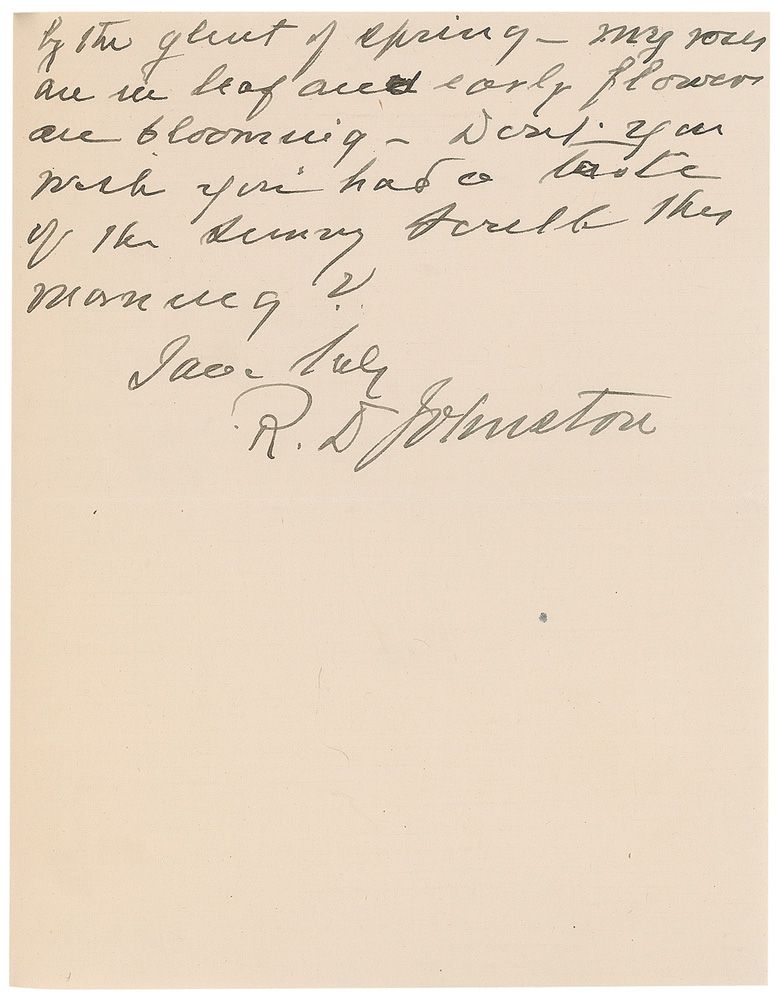 by the glint of spring – my roses
are in leaf and early flowers
are blooming – Dont you
wish you had a taste
of the sunny South this
morning?
Yours truly
R. D Johnston